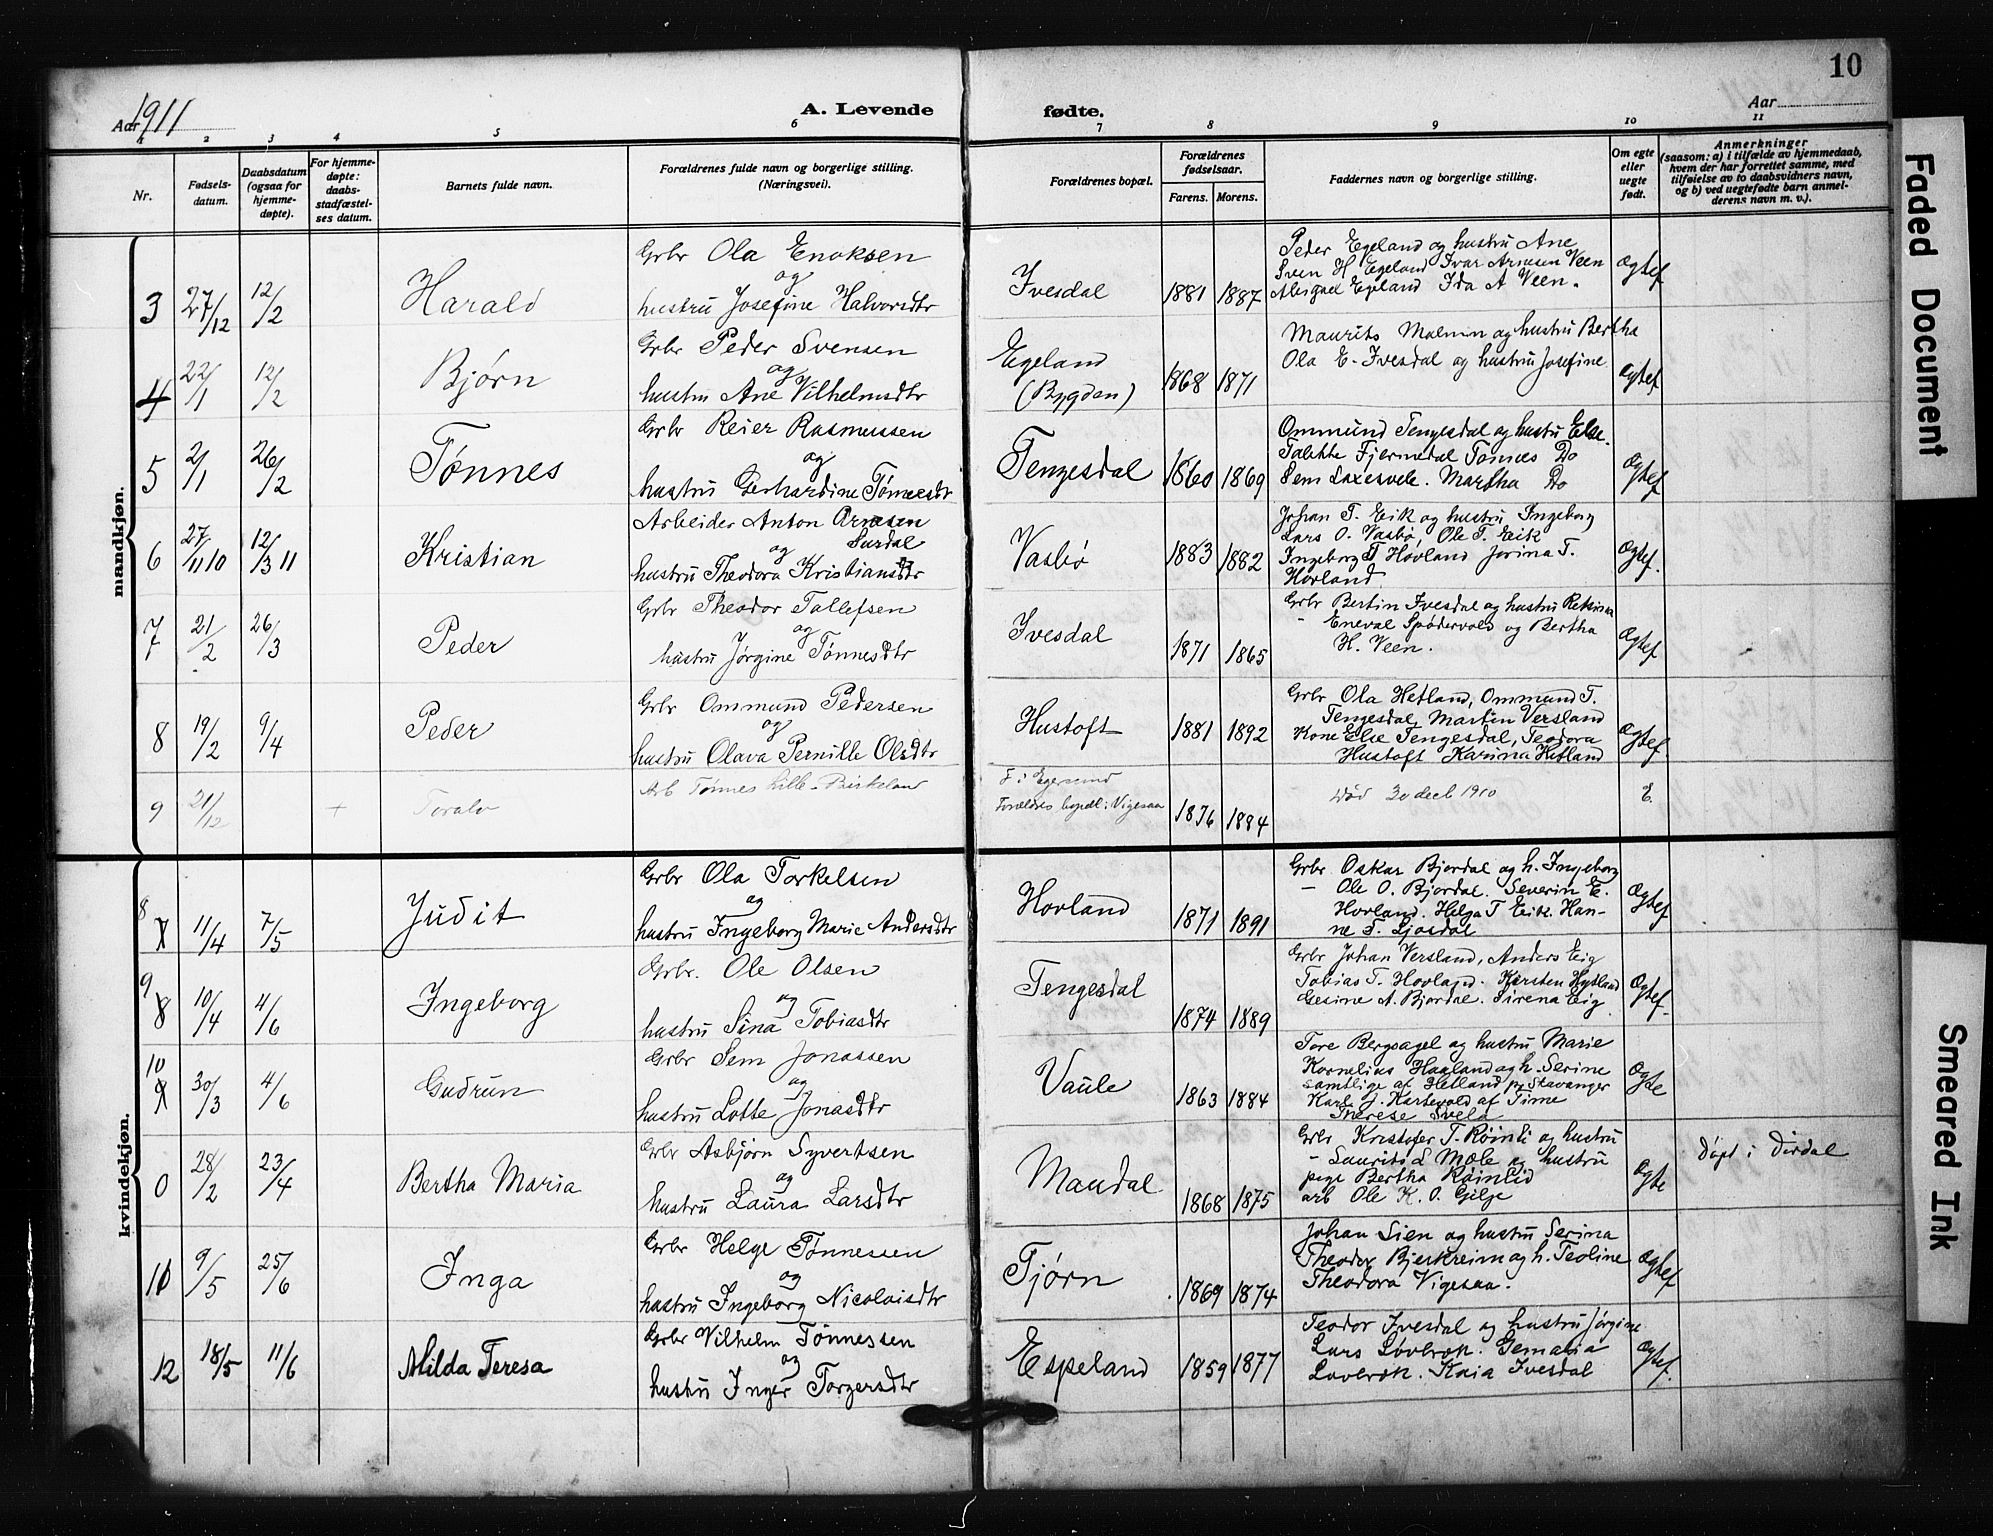 10
Aar 1911
A. Levende
fødte.
Aar
1 2 3 4 5 6 7 8 9 10 11
Nr.
Fødsels-
datum.
Daabsdatum
(ogsaa for
hjemme-
døpte).
For hjemme-
døpte:
daabs-
stadfæstel-
ses datum.
Barnets fulde navn.
Forældrenes fulde navn og borgerlige stilling.
(Næringsvei).
Forældrenes bopæl.
Forældrenes
fødselsaar.
Farens. Morens.
Faddernes navn og borgerlige stilling.
Om egte
eller
uegte
født.
Anmerkninger
(saasom: a) i tilfælde av hjemmedaab,
hvem der har forrettet samme, med
tilføielse av to daabsvidners navn,
og b) ved uegtefødte barn anmel-
derens navn m. v.).
mandkjøn.
3 27/12 12/2 Harald
Grbr Ola Enoksen
og
hustru Josefine Halvorsdtr
Ivesdal 1881 1887
Peder Egeland og hustru Ane
Sven H Egeland Ivar Arnesen Veen
Abigael Egeland Ida A Veen.
Ægtef
4 22/1 12/2 Bjørn
Grbr Peder Svensen
og
hustru Ane Vilhelmsdtr
Egeland
(Bygden)
1868 1871
Maurits Malmin og hustru Bertha
Ola E. Ivesdal og hustru Josefine
Ægtef
5 2/1 26/2 Tønnes
Grbr Reier Rasmussen
og
hustru Gerhardine Tønnesdtr
Tengesdal 1860 1869
Ommund Tengesdal og hustru Else.
Talette Fjermedal Tønnes Do
Sem Laxesvele. Martha Do
Ægtef
6 27/11 10 12/3 11 Kristian
Arbeider Anton Arnesen
og Surdal
hustru Theodora Kristiansdtr
Vasbø 1883 1882
Johan T. Eik og hustru Ingeborg
Lars O. Vasbø, Ole T. Eik
Ingeborg T Hovland Jorina T.
Hovland
Ægtef.
7 21/2 26/3 Peder
Grbr Theodor Tollefsen
og
hustru Jørgine Tønnesdtr
Ivesdal 1871 1865
Grbr Bertin Ivesdal og hustru
- Eneval Spødervold og Bertha
H. Veen.
Ægtef
8 19/2 9/4 Peder
Grbr Ommund Pedersen
og
hustru Olava Pernille Olsdtr
Hustoft 1881 1892
Grbr Ola Hetland, Ommund T.
Tengesdal, Martin Versland
Kone Else Tengesdal, Teodora
Hustoft Karina Hetland
Ægtef.
9 21/12 + Toralv
Arb Tønnes Lille-Birkeland
F i Egersund
Forældres bopæl: Vigesaa
1876 1884
Død 30 decb 1910
E.
kvindekjøn.
8 7 11/4 7/5 Judit
Grbr Ola Torkelsen
og
hustru Ingeborg Marie Andersdtr
Hovland 1871 1891
Grbr Oskar Bjordal og h. Ingeborg
- Ole O. Bjordal. Severin E.
Hovland. Helga T Eik. Han-
ne T. Gjosdal
Ægtef
9 8 10/4 4/6 Ingeborg
Grbr. Ole Olsen
og
hustru Sina Tobiasdtr
Tengesdal 1874 1889
Grbr Johan Versland, Anders Eig
Tobias T. Hovland. Karsten Hetland
Gesine A. Bjordal. Sirena Eig
Ægtef.
10 9 30/3 4/6 Gudrun
Grbr Sem Jonassen
og
hustru Lotte Jonasdtr
Vaule 1863 1884
Tore Bergsagel og hustru Marie
Kornelius Haaland og h. Serine
samtlige af Hetland pr Stavanger
Karl J. Kartevold af Time
Therese Svela
Ægte
0 28/2 23/4 Bertha Maria
Grbr Asbjørn Syvertsen
og
hustru Laura Larsdtr
Maudal 1868 1875
Grbr Kristofer T. Røinli og hustru
- Laurits L Mæle og hustru
pige Bertha Røinlid
arb Ole K. O. Gilje
Ægte
Døpt i Dirdal
11 9/5 25/6 Inga
Grbr Helge Tønnessen
og
hustru Ingeborg Nicolaisdtr
Tjørn 1869 1874
Johan Lien og hustru Serina
Theodor Bjerkreim og h. Teoline
Theodora Vigesaa.
Ægtef
12 18/5 11/6 Milda Teresa
Grbr Vilhelm Tønnessen
og
hustru Inger Torgersdtr
Espeland 1859 1877
Teodor Ivesdal og hustru Jørgine
Lars Løvbrok. Gemalia
Løvbrok. Kaia Ivesdal
Ægtef.
Faded Document
Smeared Ink